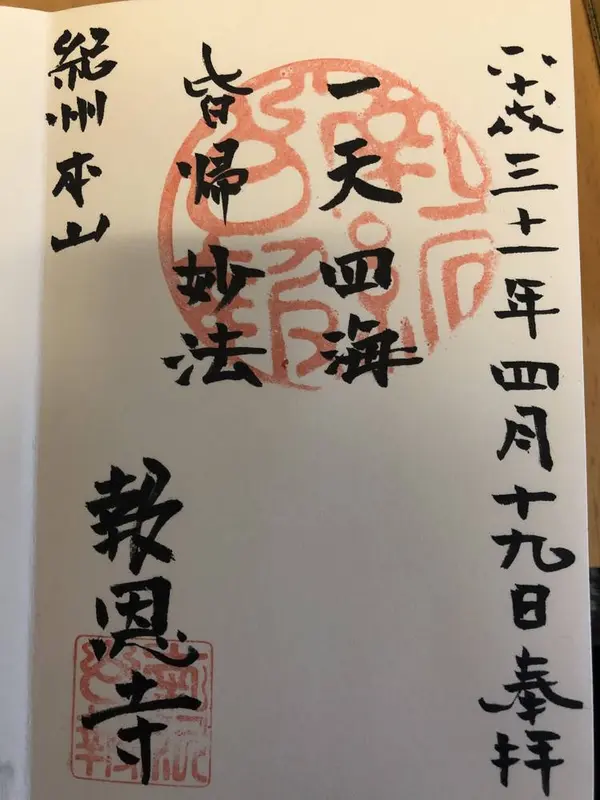 平成三十一年四月十九日奉拝
一天四海
皆帰妙法
紀州本山
報恩寺